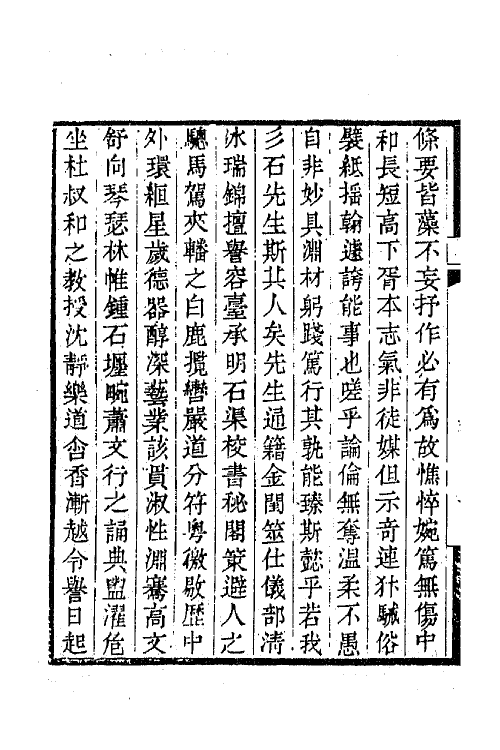 條要皆藻不妄抒作必有為故憔悴婉篤無傷中
和長短高下胥本志氣非徒媒但示奇連犿駴俗
襞紙揺翰遽誇能事也嗟乎論倫無奪溫柔不愚
自非妙具淵材躬踐篤行其孰能臻斯懿乎若我
彡石先生斯其人矣先生通籍金閨筮仕儀部清
冰瑞錦擅譽容臺承明石渠校書秘閣策避人之
驄馬駕夾轓之白鹿攬轡嚴道分符粵徼敭歷中
外環絙星歲德器醇深藝業該貫淑性淵騫高文
舒向琴瑟林帷鍾石壢畹蕭文行之誦典盥濯危
坐杜叔和之教授沈靜樂道舎香漸越令譽日起